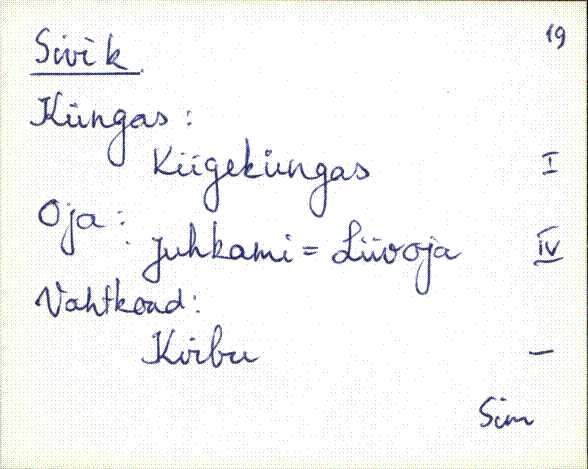 Sivik 19
Küngas:
Kiigeküngas I
Oja:
Juhkami = Liivoja IV
Vahtkond:
Kirbu —
Sim